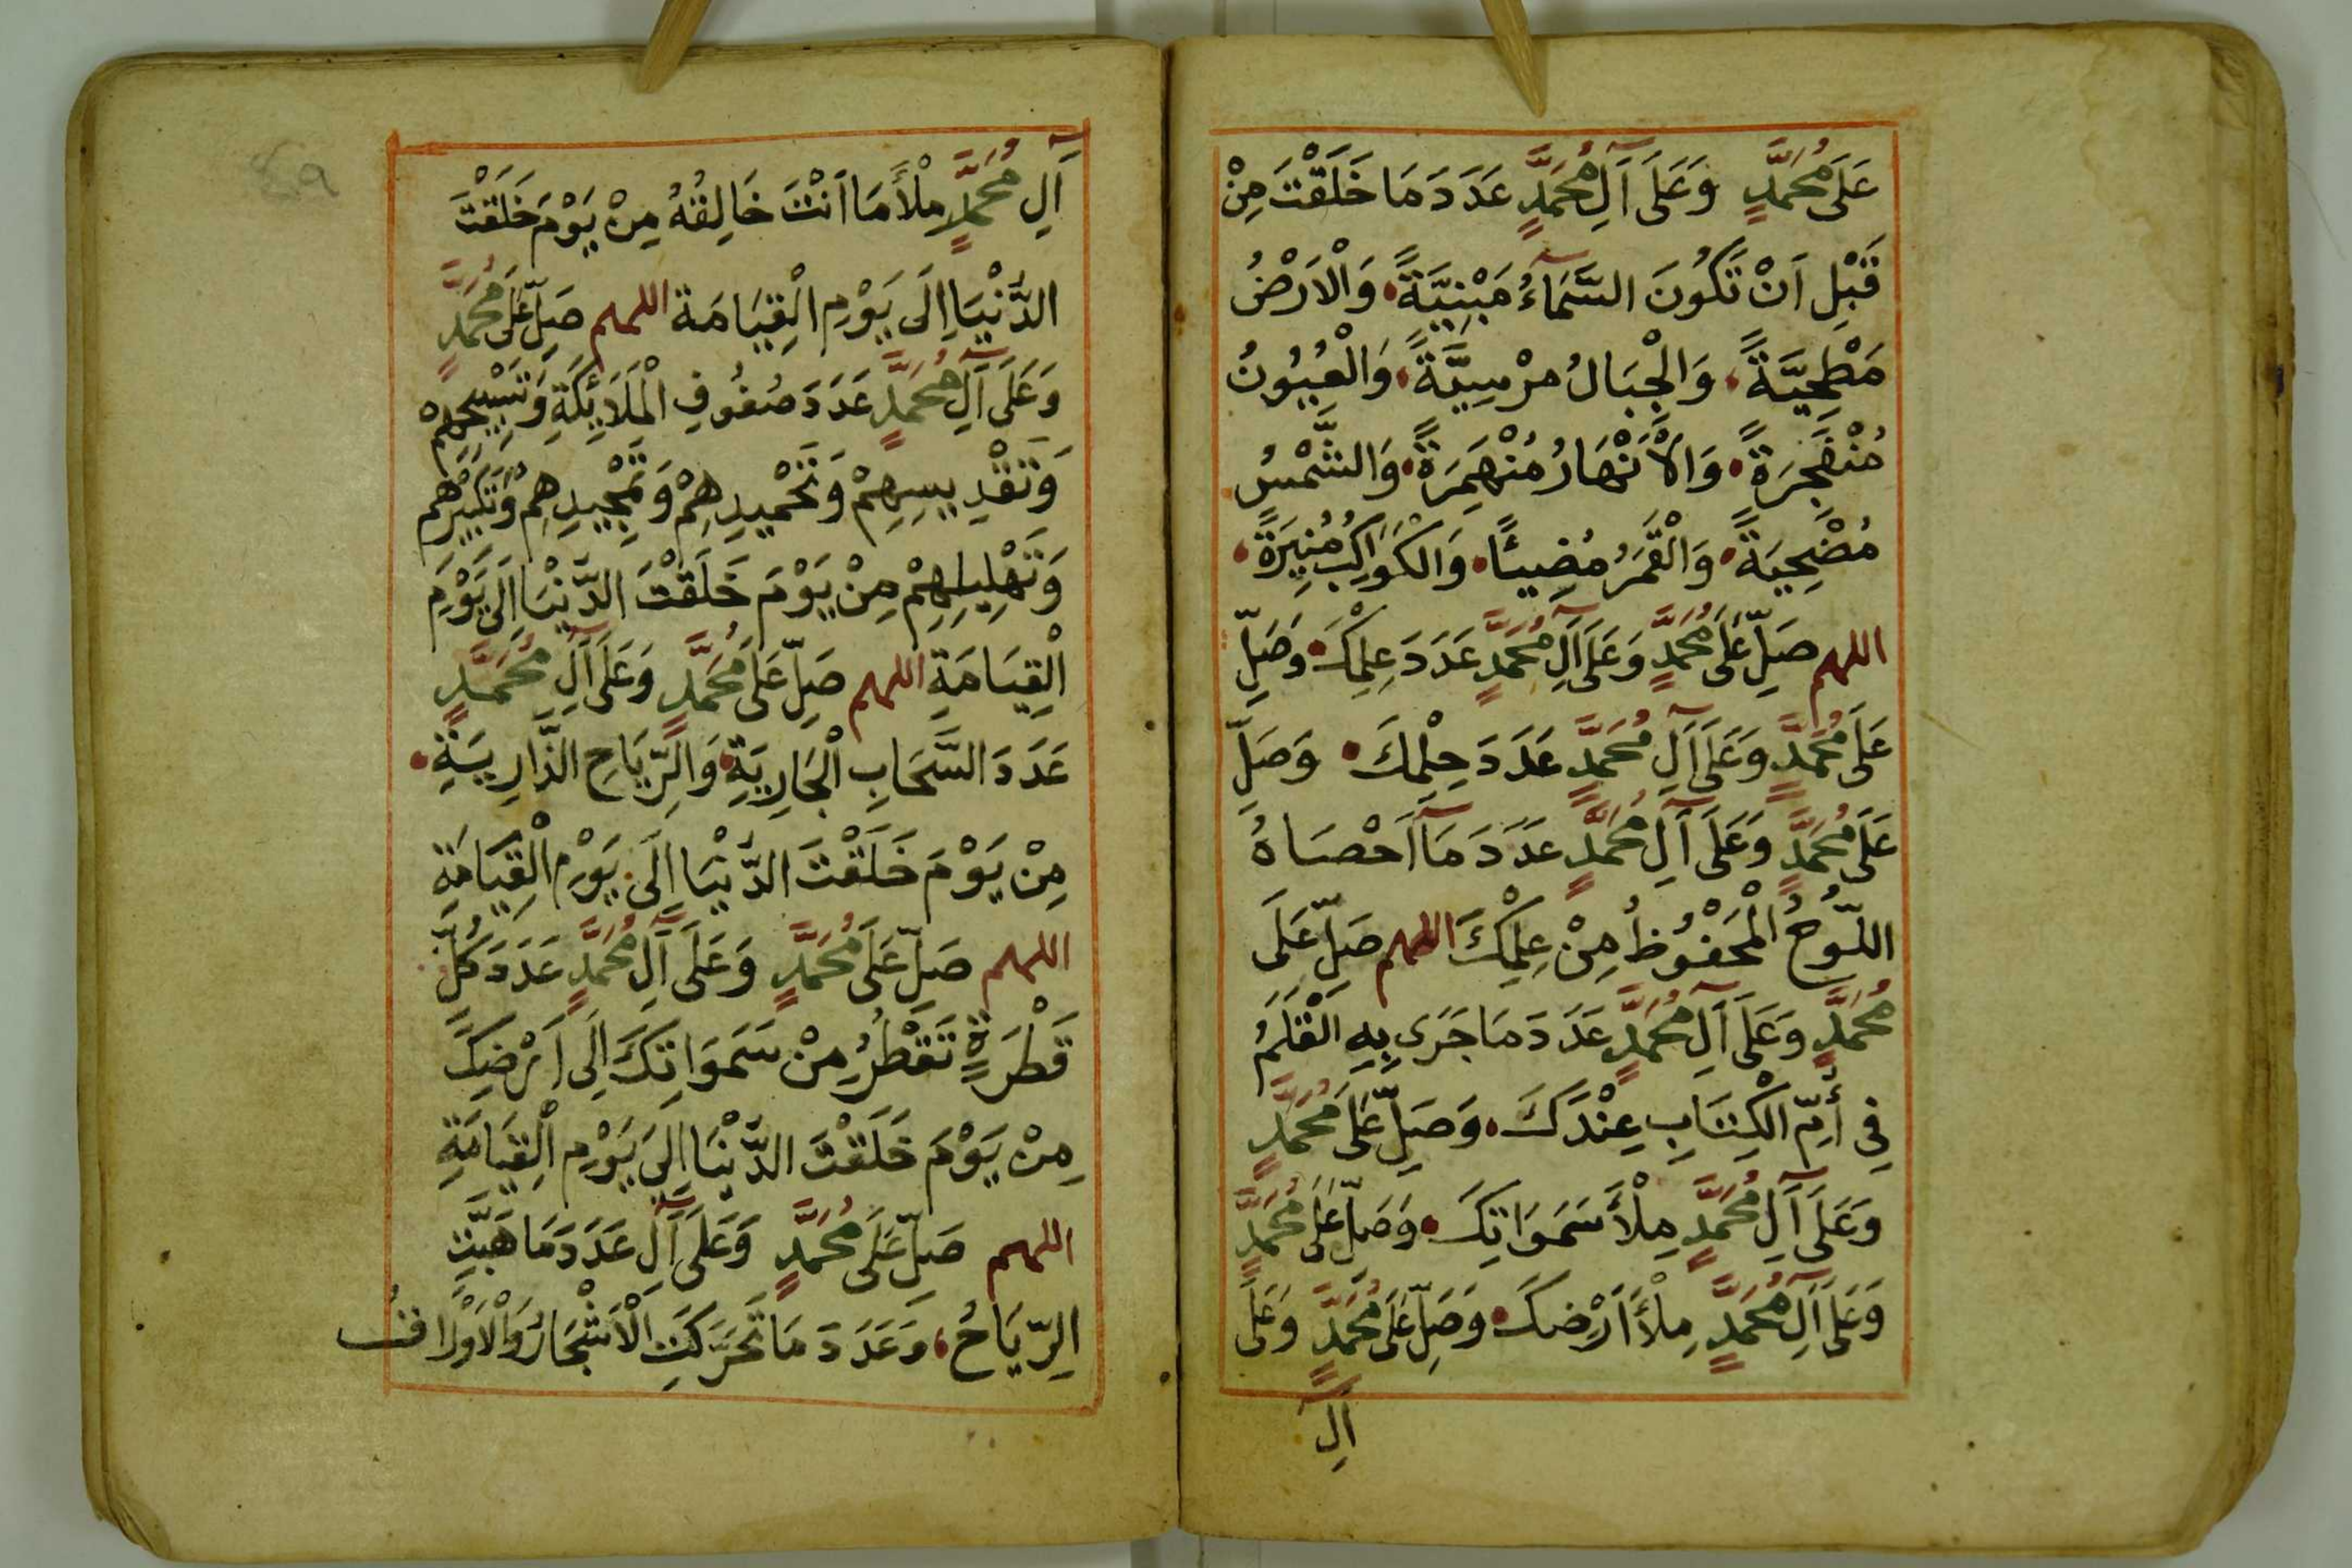 عَلَى مُحَمَّدٍ وَعَلَى آلِ مُحَمَّدٍ عَدَدَ مَا خَلَقْتَ مِنْ
قَبْلِ اَنْ تَكُونَ السَّمَآءُ مَبْنِيَّةً وَالْاَرْضُ
مَطْحِيَّةً وَالْجِبَالُ مرْسِيَّةً وَالْعُيُونُ
مُنْفَجِرَةً وَالْاَنْهَارُ مُنْهَمِرَةً وَالشَّمْسُ
مُضْحِيَةً وَالْقَمَرُ مُضِيئًا وَالْكَوَاكِبُ مُنِيرَةً
اللهم صَلِّ عَلَى مُحَمَّدٍ وَعَلَى آلِ مُحَمَّدٍ عَدَدَ عِلْمِكَ وَصَلِّ
عَلَى مُحَمَّدٍ وَعَلَى آلِ مُحَمَّدٍ عَدَدَ حِلْمِكَ وَصَلِّ
عَلَى مُحَمَّدٍ وَعَلَى آلِ مُحَمَّدٍ عَدَدَ مَآ اَحْصَاهُ
اللَّوْحُ الْمَحْفُوظُ مِنْ عِلْمِكَ اللهم صَلِّ عَلَى
مُحَمَّدٍ وَعَلَى آلِ مُحَمَّدٍ عَدَدَ مَا جَرَى بِهِ الْقَلَمُ
فِي أُمِّ الْكِتَابِ عِنْدَكَ وَصَلِّ عَلَى مُحَمَّدٍ
وَعَلَى آلِ مُحَمَّدٍ مِلْأَ سَمَوَاتِكَ وَصَلِّ عَلَى مُحَمَّدٍ
وَعَلَى آلِ مُحَمَّدٍ مِلْأَ اَرْضِكَ وَصَلِّ عَلَى مُحَمَّدٍ وَعَلَى
آلِ
٤٩
آلِ مُحَمَّدٍ مِلْأَ مَا اَنْتَ خَالِقُهُ مِنْ يَوْمَ خَلَقْتَ
الدُّنْيَا اِلَى يَوْمِ الْقِيَامَة اللهم صَلِّ عَلَى مُحَمَّدٍ
وَعَلَى آلِ مُحَمَّدٍ عَدَدَ صُفُوفِ الْمَلَائِكَةِ وَتَسْبِيحِهِمْ
وَتَقْدِيسِهِمْ وَتَحْمِيدِهِمْ وَتَمْجِيدِهِمْ وَتَكْبِيرِهِمْ
وَتَهْلِيلِهِمْ مِنْ يَوْمَ خَلَقْتَ الدُّنْيَا اِلَى يَوْمِ
الْقِيَامَةِ اللهم صَلِّ عَلَى مُحَمَّدٍ وَعَلَى آلِ مُحَمَّدٍ
عَدَدَ السَّحَابِ الْجَارِيَةِ وَالرِّيَاحِ الذَّارِيَةِ
مِنْ يَوْمَ خَلَقْتَ الدُّنْيَا اِلَى يَوْمِ الْقِيَامَةِ
اللهم صَلِّ عَلَى مُحَمَّدٍ وَعَلَى آلِ مُحَمَّدٍ عَدَدَ كُلِّ
قَطْرَةٍ تَقْطُرُ مِنْ سَمَوَاتِكَ اِلَى اَرْضِكَ
مِنْ يَوْمَ خَلَقْتَ الدُّنْيَا اِلَى يَوْمِ الْقِيَامَةِ
اللهم صَلِّ عَلَى مُحَمَّدٍ وَعَلَى آلِ عَدَدَ مَا هَبَّتِ
الرِّيَاحُ وَعَدَدَ مَا تَحَرَّكَتِ الْاَشْجَارُ وَالْاَوْرَاقُ